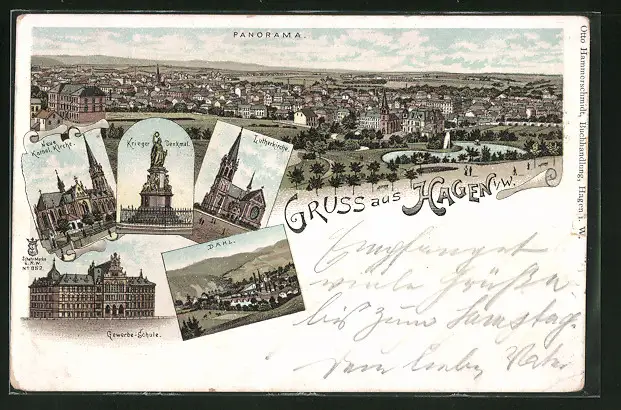 PANORAMA.
Neue
Kathol. Kirche.
Krieger Denkmal.
Lutherkirche
GRUSS aus HAGEN i/W.
DAHL.
Schutz-Marke
No 952.
Gewerbe-Schule.
Otto Hammerschmidt, Buchhandlung, Hagen i. W.
Empfanget
viele Grüße
bis zum Samstag.
Dein lieber Vater